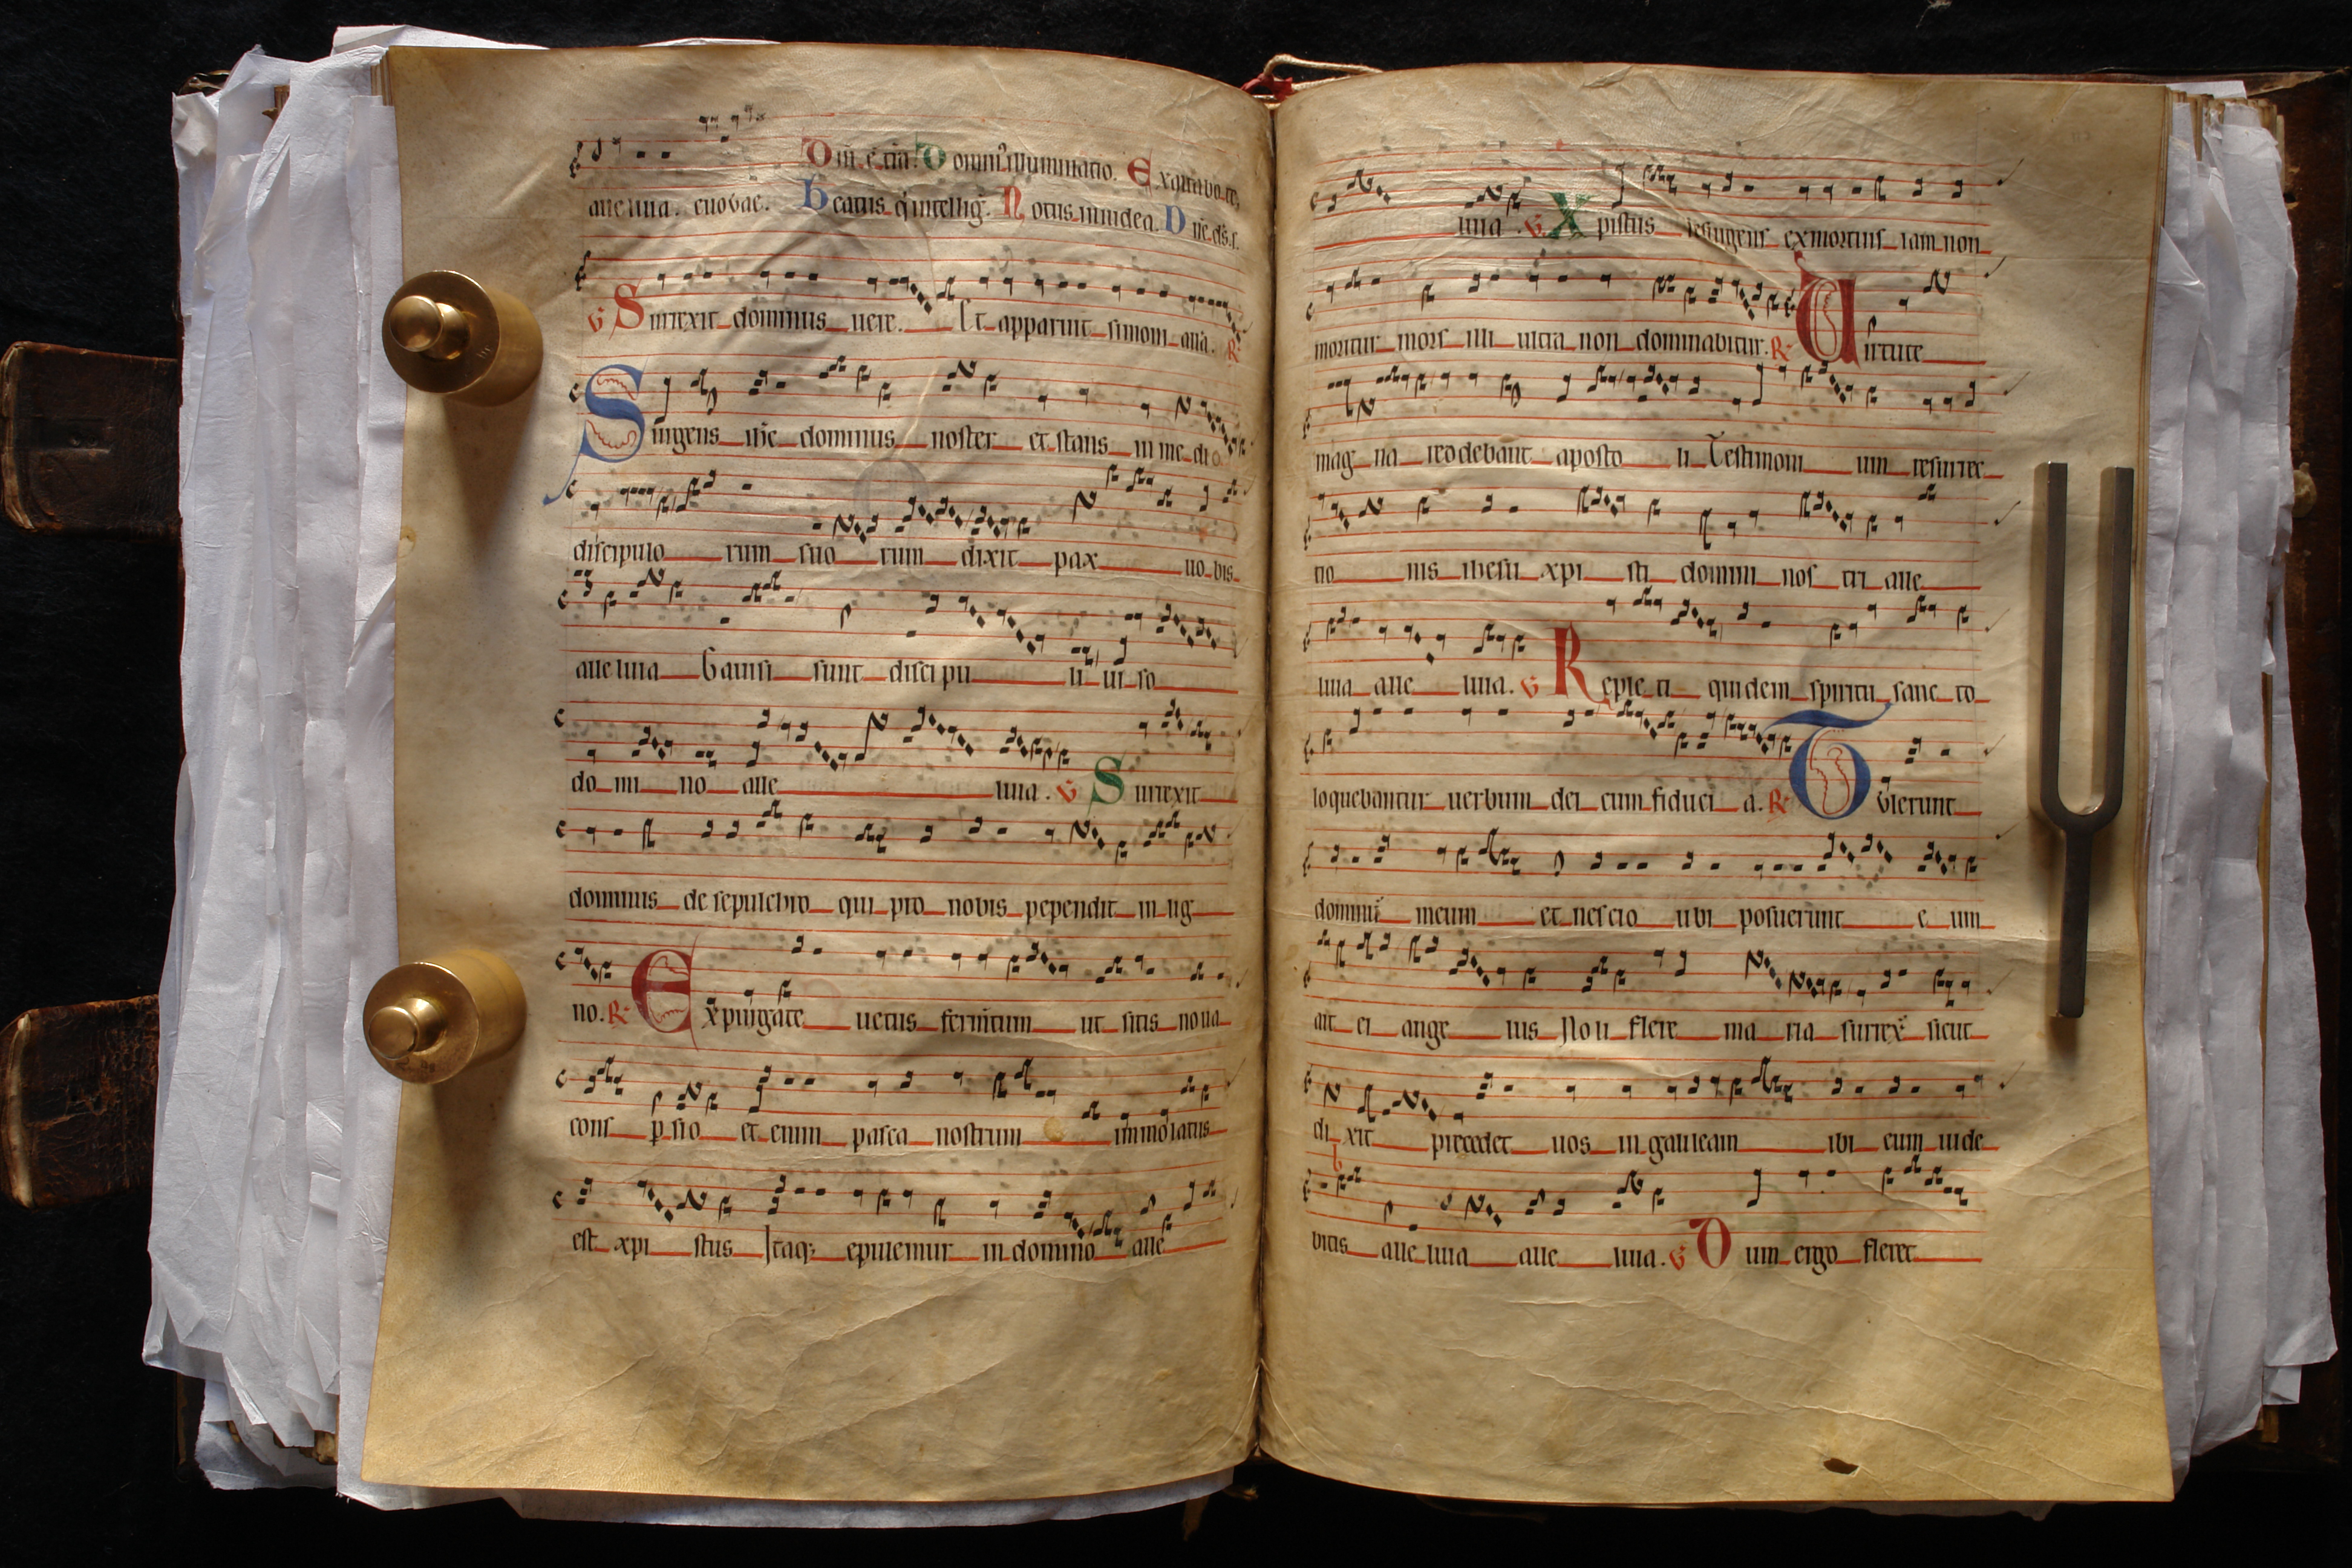 alleluia. euouae. Dñi. ẽ. tr̃a. Domin⁹ illuminatio. Exaltabo te,
Beatus q̇ intellig̃. Notus in iudea. Dñe. ds̃. s.
V Surrexit dominus uere. Et apparuit simoni. alla. R
Surgens ihc̃ dominus noster et stans in medio
discipulorum suorum dixit pax uobis
alleluia Gauisi sunt discipuli uiso
domino alleluia. V Surrexit
dominus de sepulchro qui pro nobis pependit in lig
no. R Expurgate uetus ferm̃tum ut sitis noua
consꝑsio et enim pasca nostrum immolatus
est xpistus Itaqꝫ epulemur in domino alle
luia. V Xpistus resurgens ex mortuis iam non
moritur mors illi ultra non dominabitur. R Uirtute
magna reddebant apostoli Testimonium resurrec
tionis ihesu xpisti domini nostri alle
luia alleluia. V Repleti quidem spiritu sancto
loquebantur uerbum dei cum fiducia. R Tulerunt
dominũ meum et nescio ubi posuerunt eum
ait ei angelus Noli flere maria surrex̃ sicut
dixit precedet uos in galileam ibi eum uide
bitis alleluia alleluia. V Dum ergo fleret